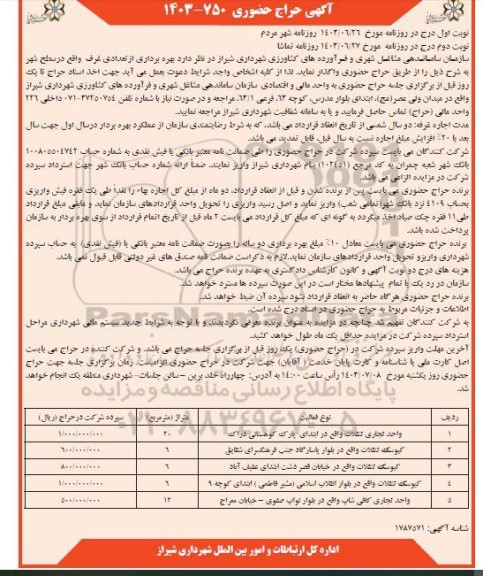 آگهی حراج حضوری ۷۵۰-۱۴۰۳
نوبت اول درج در روزنامه مورخ ۱۴۰۳/۰۶/۲۶ روزنامه شهر مردم
نوبت دوم درج در روزنامه مورخ ۱۴۰۳/۰۶/۲۷ روزنامه تماشا
سازمان ساماندهی مشاغل شهری و فرآورده های کشاورزی شهرداری شیراز در نظر دارد بهره برداری از تعدادی غرف واقع در سطح شهر
به شرح ذیل را از طریق حراج حضوری واگذار نماید. لذا از کلیه اشخاص واجد شرایط دعوت بعمل می آید جهت اخذ اسناد حراج تا یک
روز قبل از برگزاری جلسه حراج حضوری به واحد مالی و اقتصادی سازمان ساماندهی مشاغل شهری و فرآورده های کشاورزی شهرداری شیراز
واقع در میدان ولی عصر(عج)، ابتدای بلوار مدرس، کوچه ۶۳، فرعی ۶۳/۱ مراجعه و در صورت نیاز با شماره تلفن ۳۷۲۵۰۷۵۴-۰۷۱ داخلی ۲۲۶
واحد مالی (حراج) تماس حاصل فرمایید و یا به سامانه شفافیت شهرداری شیراز مراجعه نمایید.
مدت اجاره غرفه: دو سال شمسی از تاریخ انعقاد قرارداد می باشد، که به شرط رضایتمندی سازمان از عملکرد بهره بردار در سال اول جهت سال
بعد با ۲۰٪ افزایش مبلغ اجاره نسبت به سال قبل، قابل تمدید می باشد.
شرکت کنندگان می بایست سپرده شرکت در حراج حضوری را طی ضمانت نامه معتبر بانکی یا فیش نقدی به شماره حساب ۱۰۰۸۰۵۵۰۴۷۴۲
بانک شهر شعبه چمران به کد مرجع (۱۰۲۴۵۱) بنام شهرداری شیراز واریز نمایند. ضمناً ارائه شماره حساب بانک شهر جهت استرداد سپرده
شرکت در مزایده الزامی می باشد.
برنده حراج حضوری می بایست پس از برنده شدن و قبل از انعقاد قرارداد، دو ماه از مبلغ کل اجاره بها را نقداً طی یک فقره فیش واریزی
بحساب ۴۱۰۹ نزد بانک شهر(تمامی شعب) واریز نماید و اصل رسید واریزی را تحویل واحد قراردادهای سازمان نماید و مابقی مبلغ قرارداد
طی ۱۱ فقره چک صیاد اخذ میگردد به گونه ای که مبلغ کل قرارداد می بایست ۲ ماه قبل از تاریخ اتمام قرارداد از سوی بهره بردار به سازمان
پرداخت شده باشد.
برنده حراج حضوری می بایست معادل ۱۰٪ مبلغ بهره برداری دو ساله را بصورت ضمانت نامه معتبر بانکی یا (فیش نقدی) به حساب سپرده
شهرداری واریز و تحویل واحد قراردادهای سازمان نماید. لازم به ذکر است ضمانت نامه صندوق های غیر دولتی قابل قبول نمی باشد.
هزینه های درج دو نوبت آگهی و کانون کارشناس دادگستری به عهده برنده حراج می باشد.
سازمان در رد یک یا تمام پیشنهادها مختار است در این صورت سپرده ها مسترد خواهد شد.
برنده حراج حضوری هرگاه حاضر به انعقاد قرارداد نشود سپرده آن ضبط خواهد شد.
اطلاعات و جزئیات مربوط به حراج حضوری در اسناد درج شده است.
به شرکت کنندگان تفهیم شد چنانچه در مزایده به عنوان برنده معرفی نگردیدند و با توجه به شرایط جدید سیستم مالی شهرداری مراحل
استرداد سپرده شرکت در مزایده حداقل یک ماه طول خواهد کشید.
آخرین مهلت واریز سپرده شرکت در (حراج حضوری) یک روز قبل از برگزاری جلسه حراج می باشد. و شرکت کننده در حراج می بایست
اصل کارت ملی یا شناسنامه و کارت پایان خدمت ( آقایان) جهت شرکت در حراج حضوری الزامیست. زمان برگزاری جلسه جهت حراج
حضوری روز یکشنبه مورخ ۱۴۰۳/۰۷/۰۸ رأس ساعت ۱۴:۰۰ به آدرس: چهارراه خلد برین – سالن جلسات- شهرداری منطقه یک انجام خواهد
شد.
ردیف نوع فعالیت متراژ (مترمربع) سپرده شرکت در حراج (ریال)
۱ واحد تجاری تنقلات واقع در ابتدای پارک کوهستانی دراک ۲۰ ۱/۰۰۰/۰۰۰/۰۰۰
۲ کیوسک تنقلات واقع در بلوار پاسارگاد جنب فرهنگسرای شقایق ۶ ۶۰۰/۰۰۰/۰۰۰
۳ کیوسک تنقلات واقع در خیابان قصر دشت ابتدای عفیف آباد ۶ ۸۰۰/۰۰۰/۰۰۰
۴ کیوسک تنقلات واقع در بلوار انقلاب اسلامی (مشیر فاطمی ) ابتدای کوچه ۹ ۶ ۱/۰۰۰/۰۰۰/۰۰۰
۵ واحد تجاری کافی شاپ واقع در بلوار نواب صفوی – خیابان معراج ۱۲ ۵۰۰/۰۰۰/۰۰۰
شناسه آگهی: ۱۷۸۷۵۷۱
اداره کل ارتباطات و امور بین الملل شهرداری شیراز